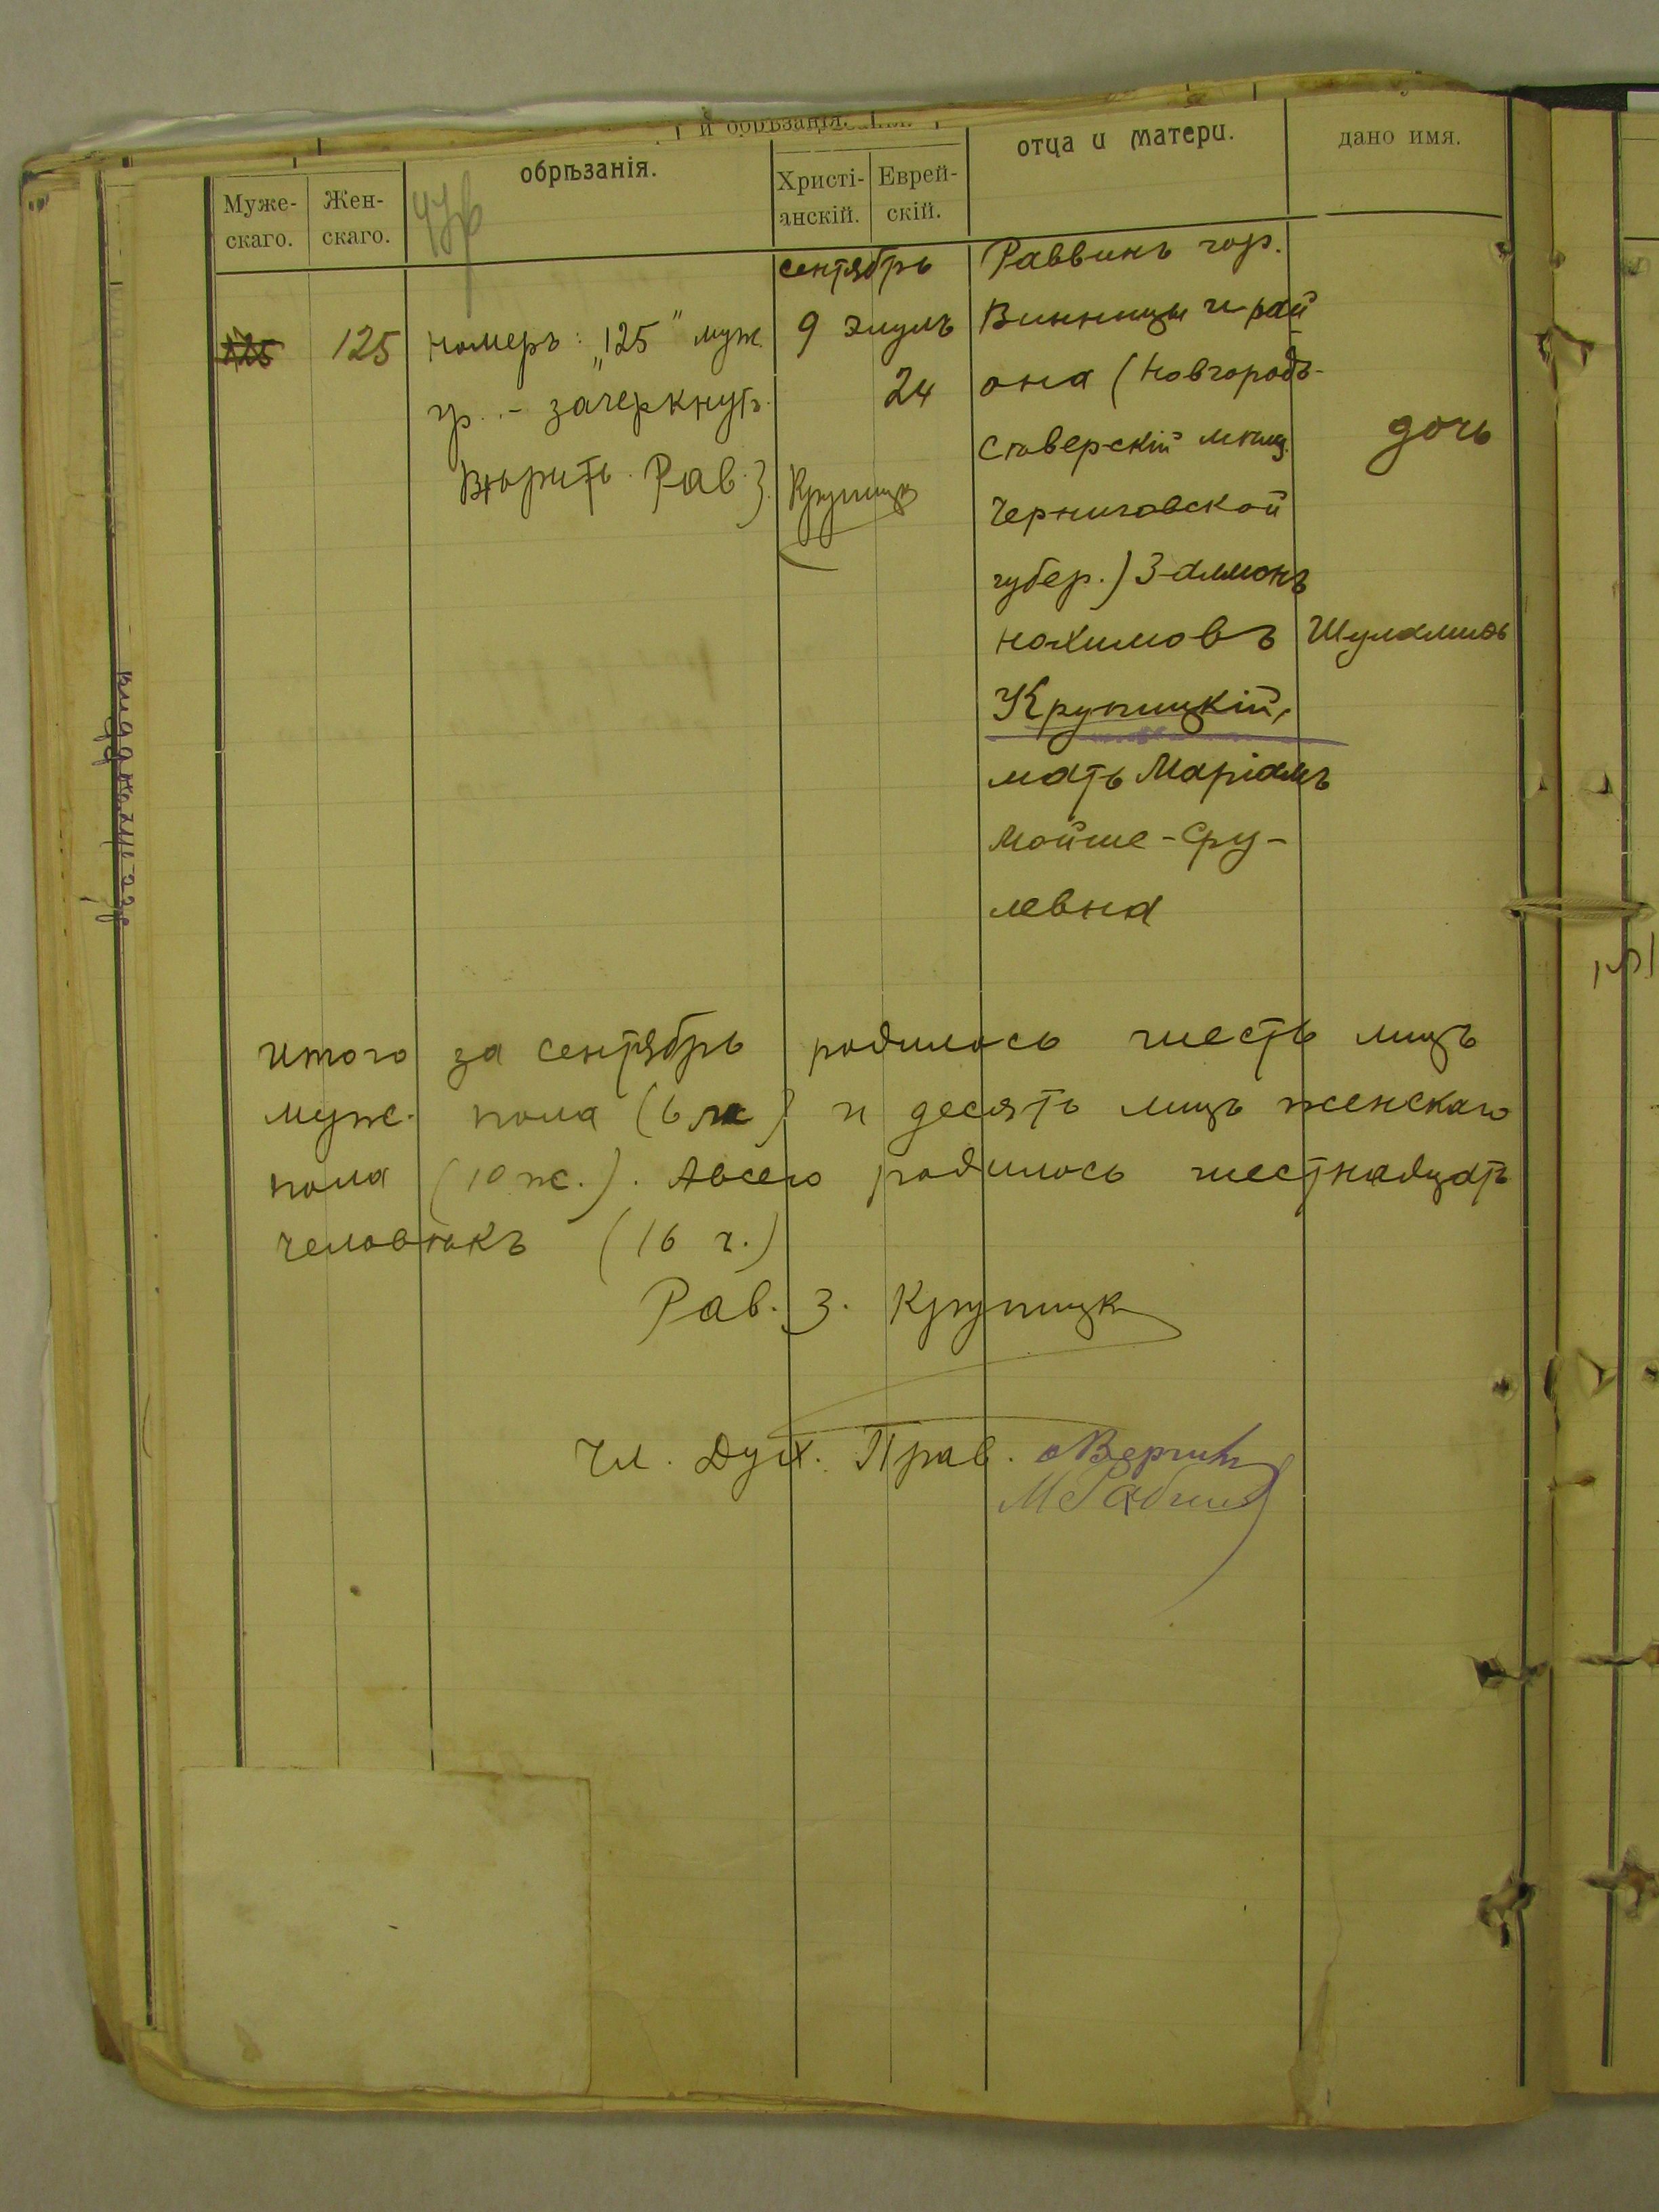 и обрѣзанія.
обрѣзанія.
отца и матери.
дано имя.
Муже-
скаго.
Жен-
скаго.
Христі-
анскій.
Еврей-
скій.
сентябрь
Раввинъ гор.
125
125
номеръ: „125" муж.
9 Элулъ
Винницы и рай
гр. - зачеркнут.
24
она (Новгородъ-
Сѣверскій мѣщ.
дочь
Вѣрить. Рав. З. Крупицк
Черниговской
губер.) Залмонъ
Нохимовъ
Шуламись
Крупицкій,
мать Маріамъ
Мойше-Сру-
левна
Итого за сентябрь родилось шесть лицъ
муж. пола (6 м) и десять лицъ женскаго
пола (10 ж.). Авсего родилось шестнадцать
человѣкъ (16 ч.)
Рав. З. Крупицк
Чл. Дух. Прав.